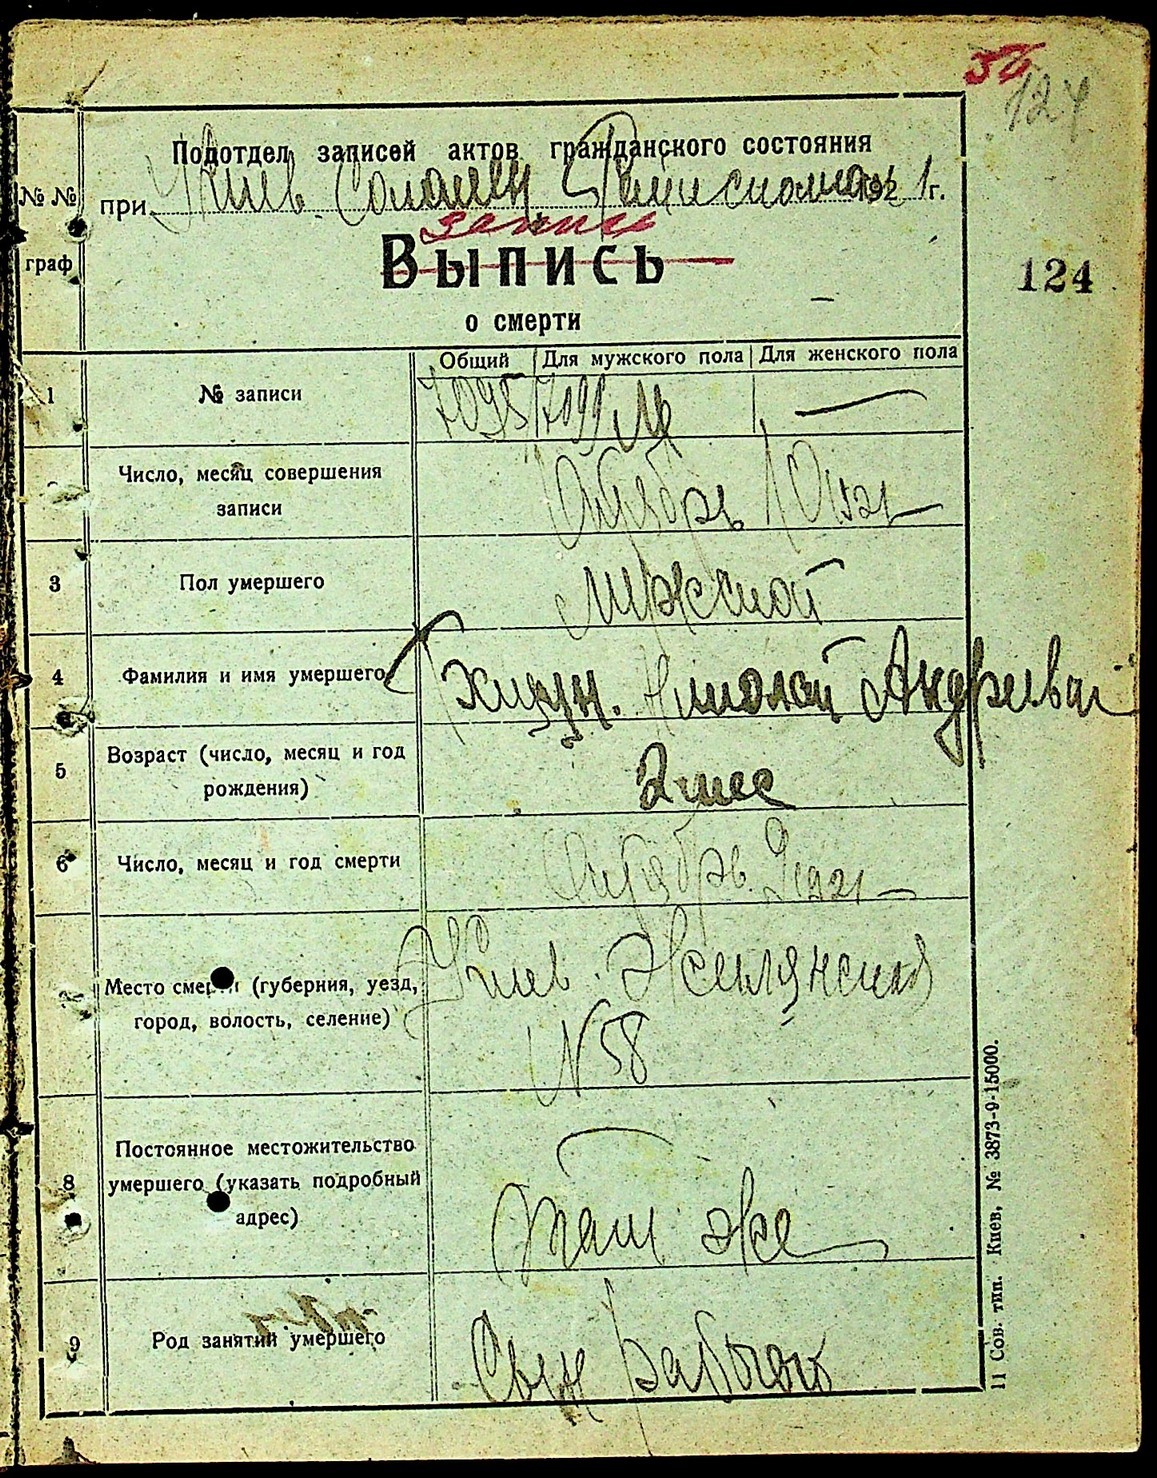 124
Подотдел записей актов гражданского состояния
№ № при Киев. 1921 г.
запись
граф Выпись
124
о смерти
Общий Для мужского пола Для женского пола
1 № записи 7095 —
Число, месяц совершения Октябрь 10 1921
записи
3 Пол умершего Мужской
4 Фамилия и имя умершего Николай Андреевич
5 Возраст (число, месяц и год 2 мес
рождения)
6 Число, месяц и год смерти Октябрь 9 1921
Место смерти (губерния, уезд, Киев. Жилянская
город, волость, селение) N 58
Постоянное местожительство
8 умершего (указать подробный Там же
адрес)
9 Род занятий умершего Сын
11 Сов. тип. Киев, № 3873-9-15000.